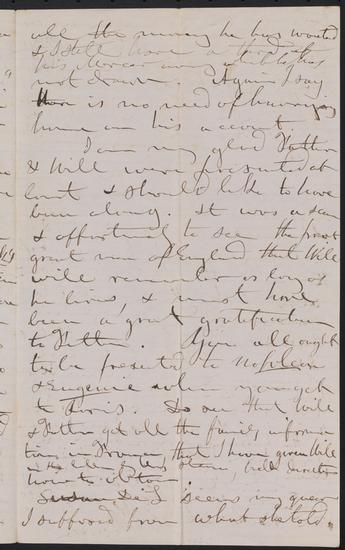 all the money he has wanted
& I still have a third of
his
not drawn. Again I say
there is no need of hurrying
home on his account.
I am very glad Hatton
& Will were presented at
Court & should like to have
been along. It was a
& opportunity to see the
great men of England that Will
will remember as long as
he lives, & must have
been a great gratification
to Hatton. You all ought
to be presented to Napoleon
& Eugenie when you get
to Paris. So see that Will
& Hatton get all the family informa
tion in that I have given Will
in the letter, with directions
how to obtain
seems very queer
I suffered from what she told